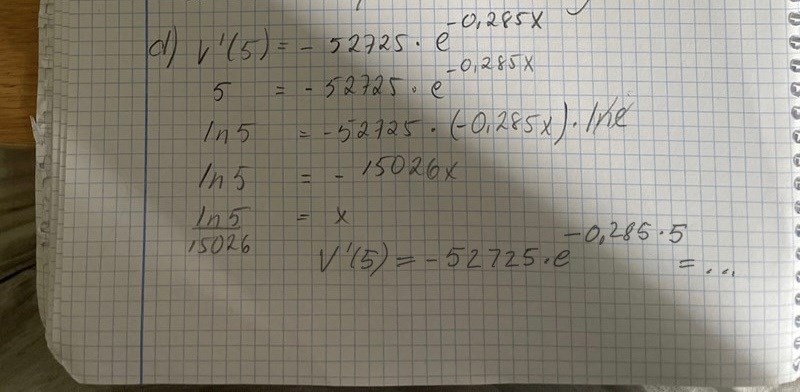 d) V'(5) = - 52725 · e^-0,285x
5 = - 52725 · e^-0,285x
ln5 = -52725 · (-0,285x) · lne
ln5 = - 15026x
ln5/15026 = x
V'(5) = -52725 · e^-0,285·5 = ...